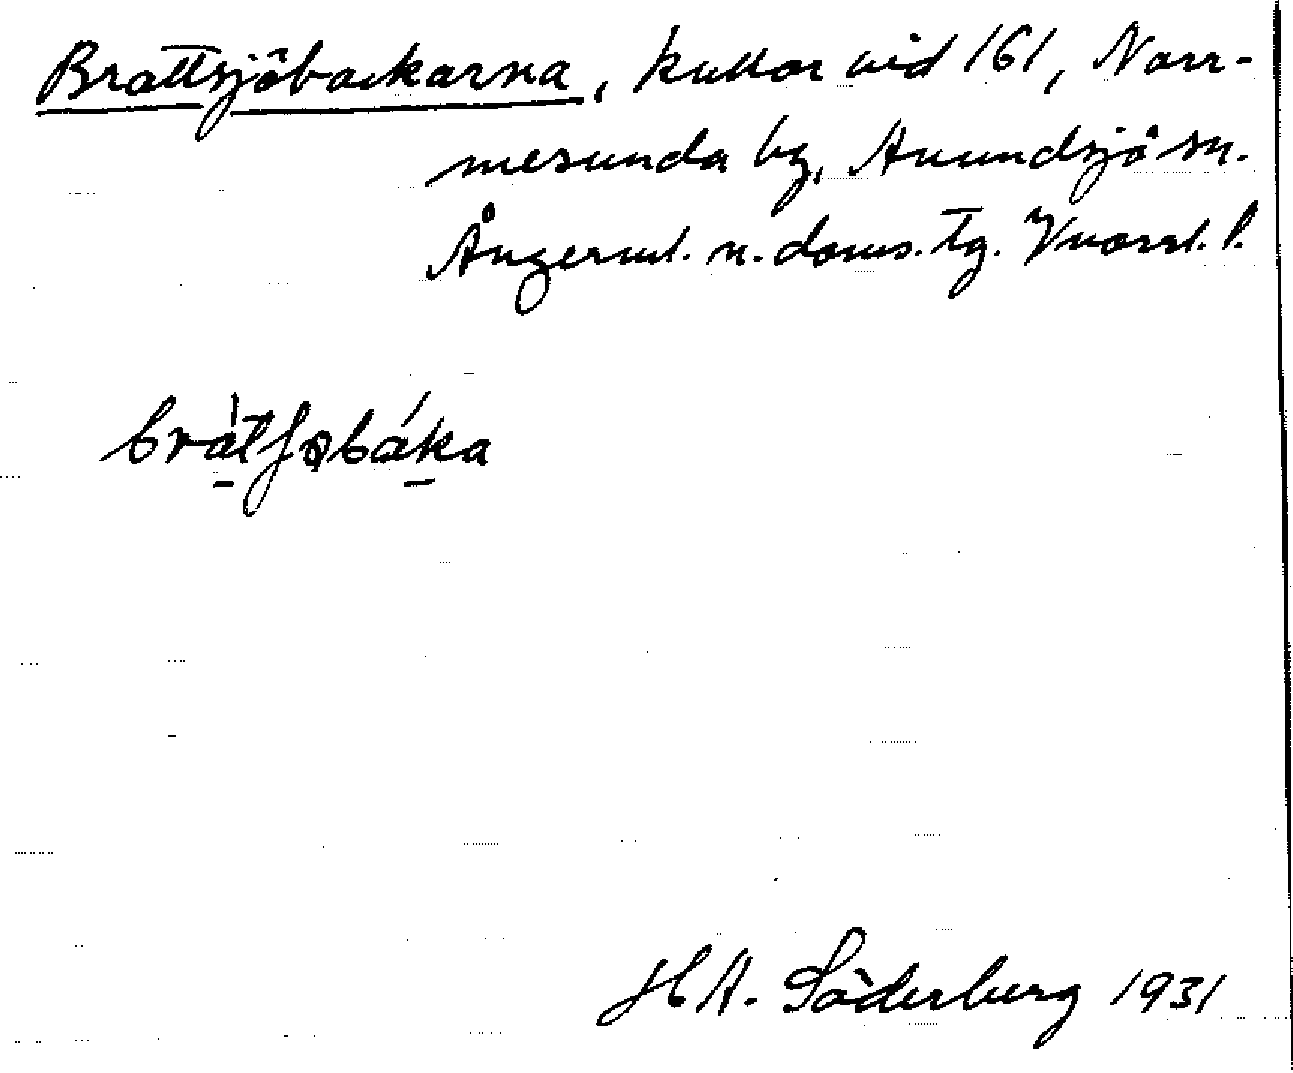 Brattsjöbackarna, kullar vid 161, Norr-
mesunda by, Anundsjö sn.
Ångerml. n. doms. tg. Vnorrl. l.
bràtʃøbáka
H A. Söderberg 1931